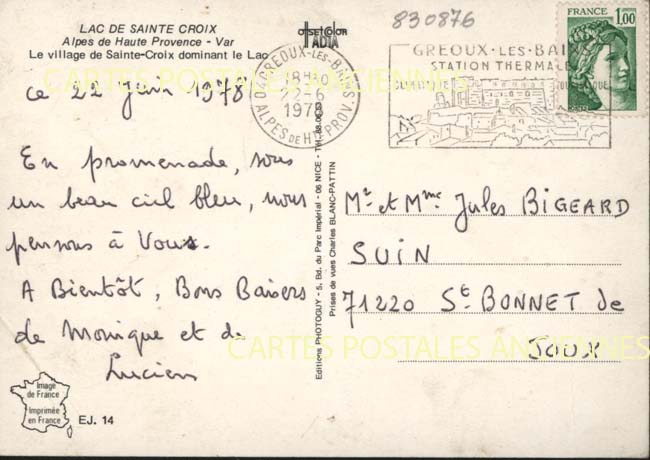 LAC DE SAINTE CROIX
Alpes de Haute Provence - Var
Le village de Sainte-Croix dominant le Lac
OFFSET COLOR
IADIA
830876
FRANCE
1,00
04 GREOUX-LES-BAINS
18H
22-6
1978
ALPES DE HTE PROV.
GREOUX-LES-BAINS
STATION THERMALE
CARTES POSTALES ANCIENNES
ce 22 Juin 1978
En promenade, sous
un beau ciel bleu, nous
pensons à Vous.
A Bientôt, Bons Baisers
de Monique et de
Lucien
Editions PHOTOGUY - 5, Bd. du Parc Impérial - 06 NICE
Prises de vues Charles BLANC-PATTIN
Mr et Mme Jules BIGEARD
SUIN
71220 St BONNET de
JOUX
CARTES POSTALES ANCIENNES
Image
de France
Imprimée
en France
EJ. 14